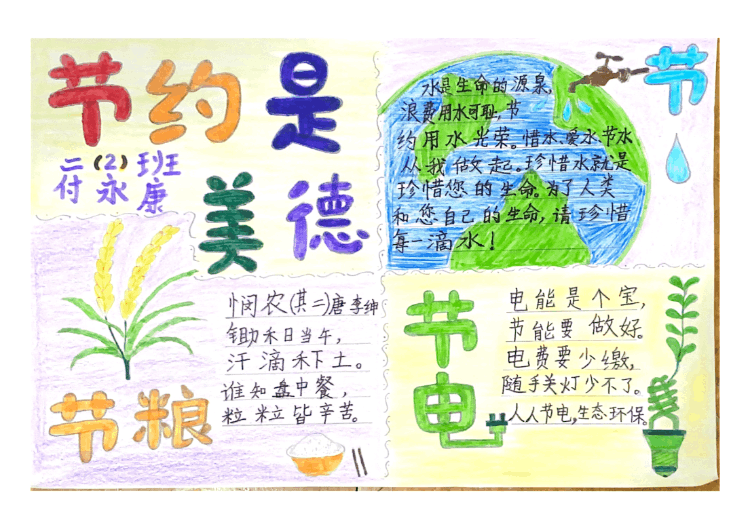 节约是
美德
二(2)班
付永康
节
水是生命的源泉,
浪费用水可耻,节
约用水光荣。惜水、爱水、节水
从我做起。珍惜水就是
珍惜您的生命。为了人类
和您自己的生命,请珍惜
每一滴水!
悯农(其二)唐 李绅
锄禾日当午,
汗滴禾下土。
谁知盘中餐,
粒粒皆辛苦。
节粮
节
电
电能是个宝,
节能要做好。
电费要少缴,
随手关灯少不了。
人人节电,生态环保。